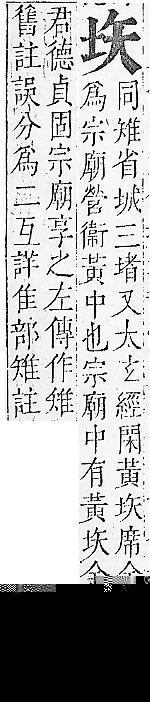 坹
同雉省城三堵又太玄經閑黃坹席金
為宗廟營衞黃中也宗廟中有黃坹金
君德貞固宗廟享之左傳作雉
舊註誤分為二互詳隹部雉註